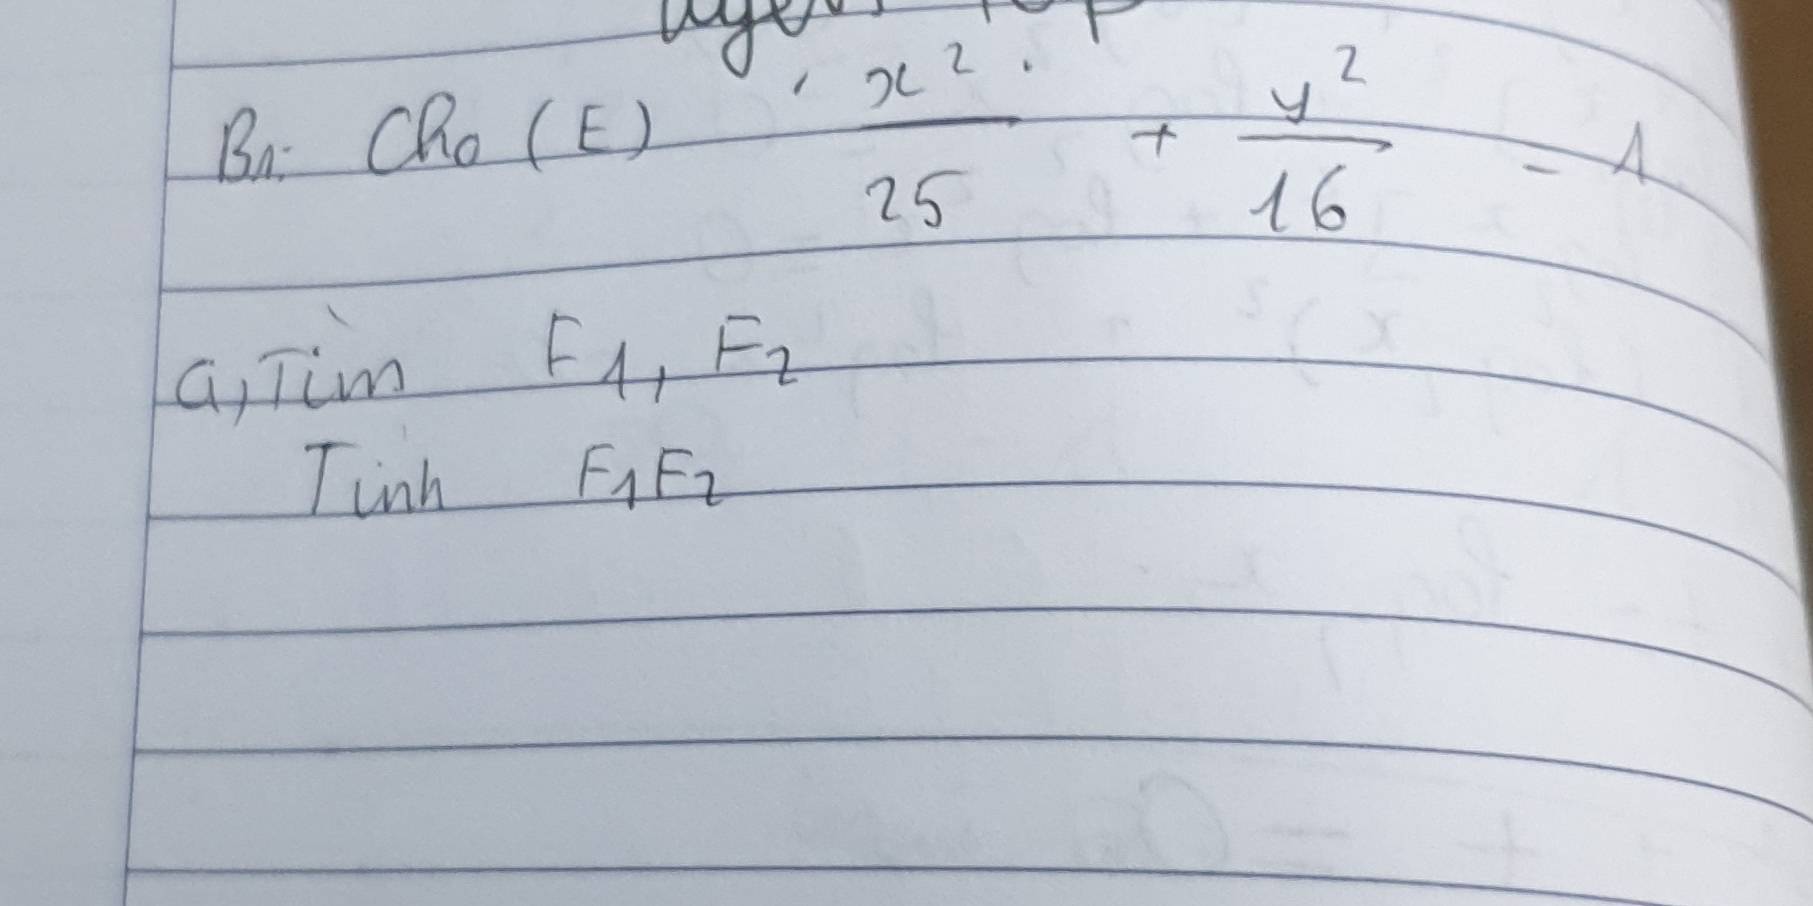 B1: Cho (E) x²/25 + y²/16 = 1
a, Tìm F1, F2
Tính F1F2